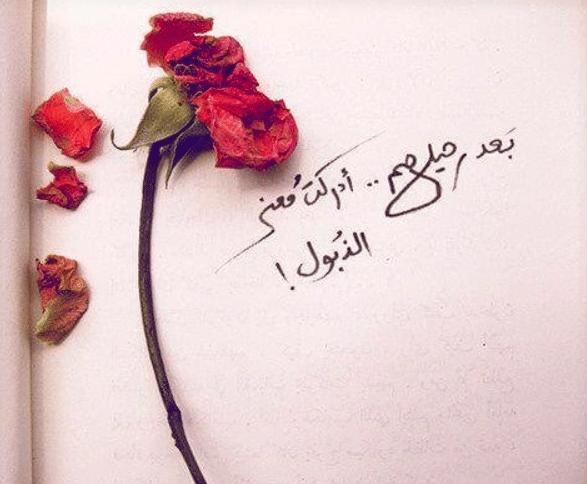 بَعد رحيلهم .. أدركت مُعنى
الذبُول !